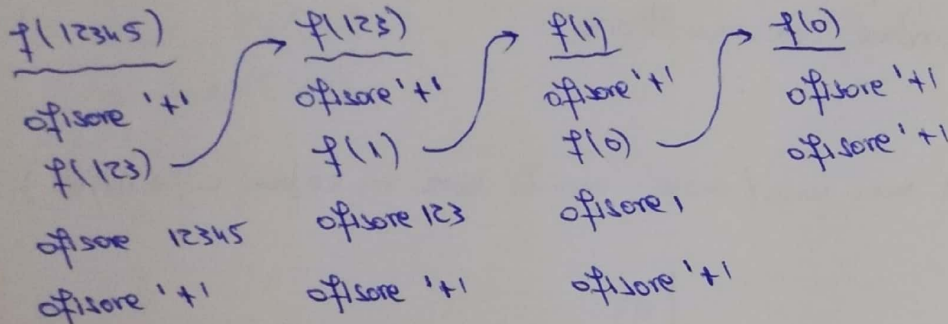 f(12345)
afisare '+'
f(123)
afisare 12345
afisare '+'
f(123)
afisare '+'
f(1)
afisare 123
afisare '+'
f(1)
afisare '+'
f(0)
afisare 1
afisare '+'
f(0)
afisare '+'
afisare '+'